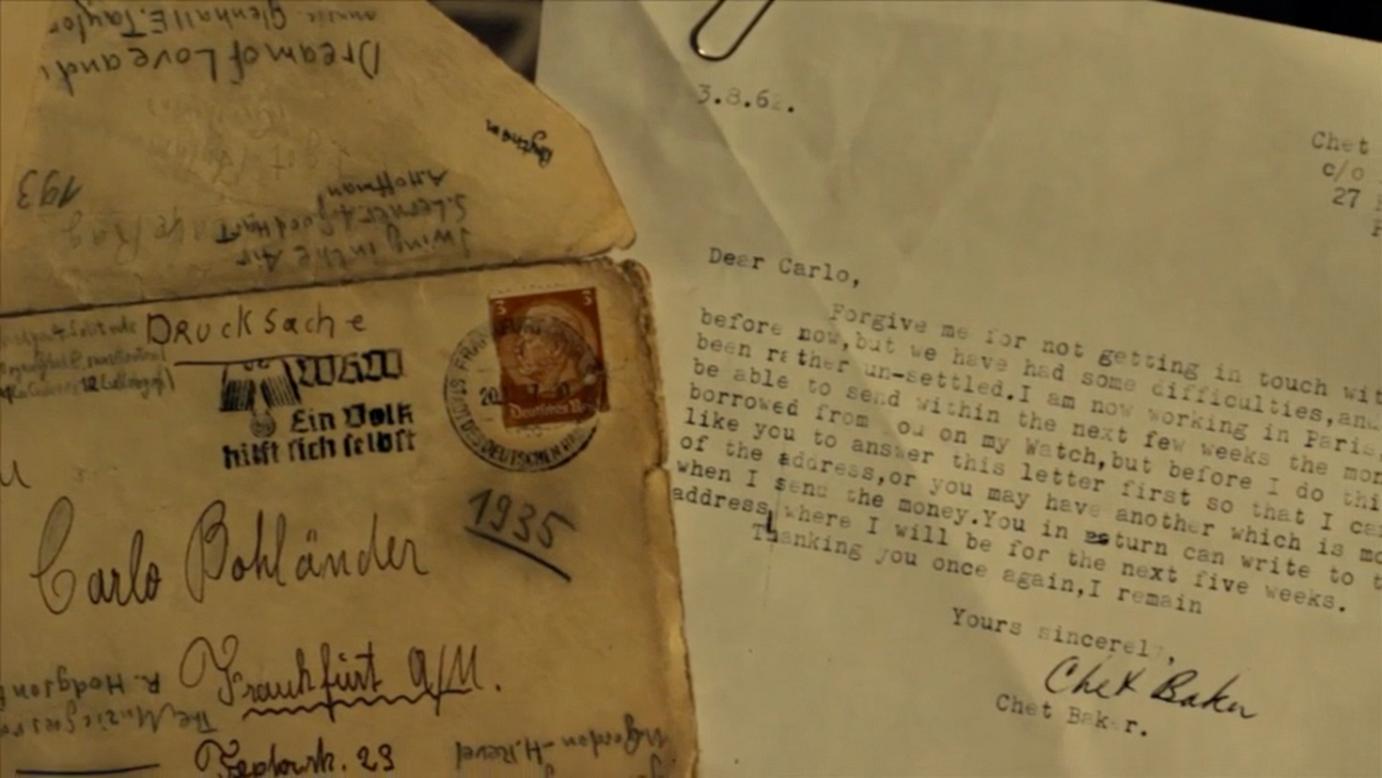 Glenhall E. Taylor
Dream of Love and
Rhythm
193
A. Hoffman
S. Lerner & Goodhart
Swing in the Air
Drucksache
WHW
Ein Volk
hilft sich selbst
3 3
Deutsches
1935
Carlo Bohländer
Frankfurt a/M.
R. Hodgson
23
Gordon - H. Revel
3.8.62.
Chet
c/o
27
Dear Carlo,
Forgive me for not getting in touch wit
before now,but we have had some difficulties,and
been rather un-settled.I am now working in Paris,
be able to send within the next few weeks the mon
borrowed from ou on my Watch,but before I do thi
like you to answer this letter first so that I can
of the address,or you may have another which is mo
when I send the money.You in return can write to t
address where I will be for the next five weeks.
Thanking you once again,I remain
Yours sincerely,
Chet Baker
Chet Baker.